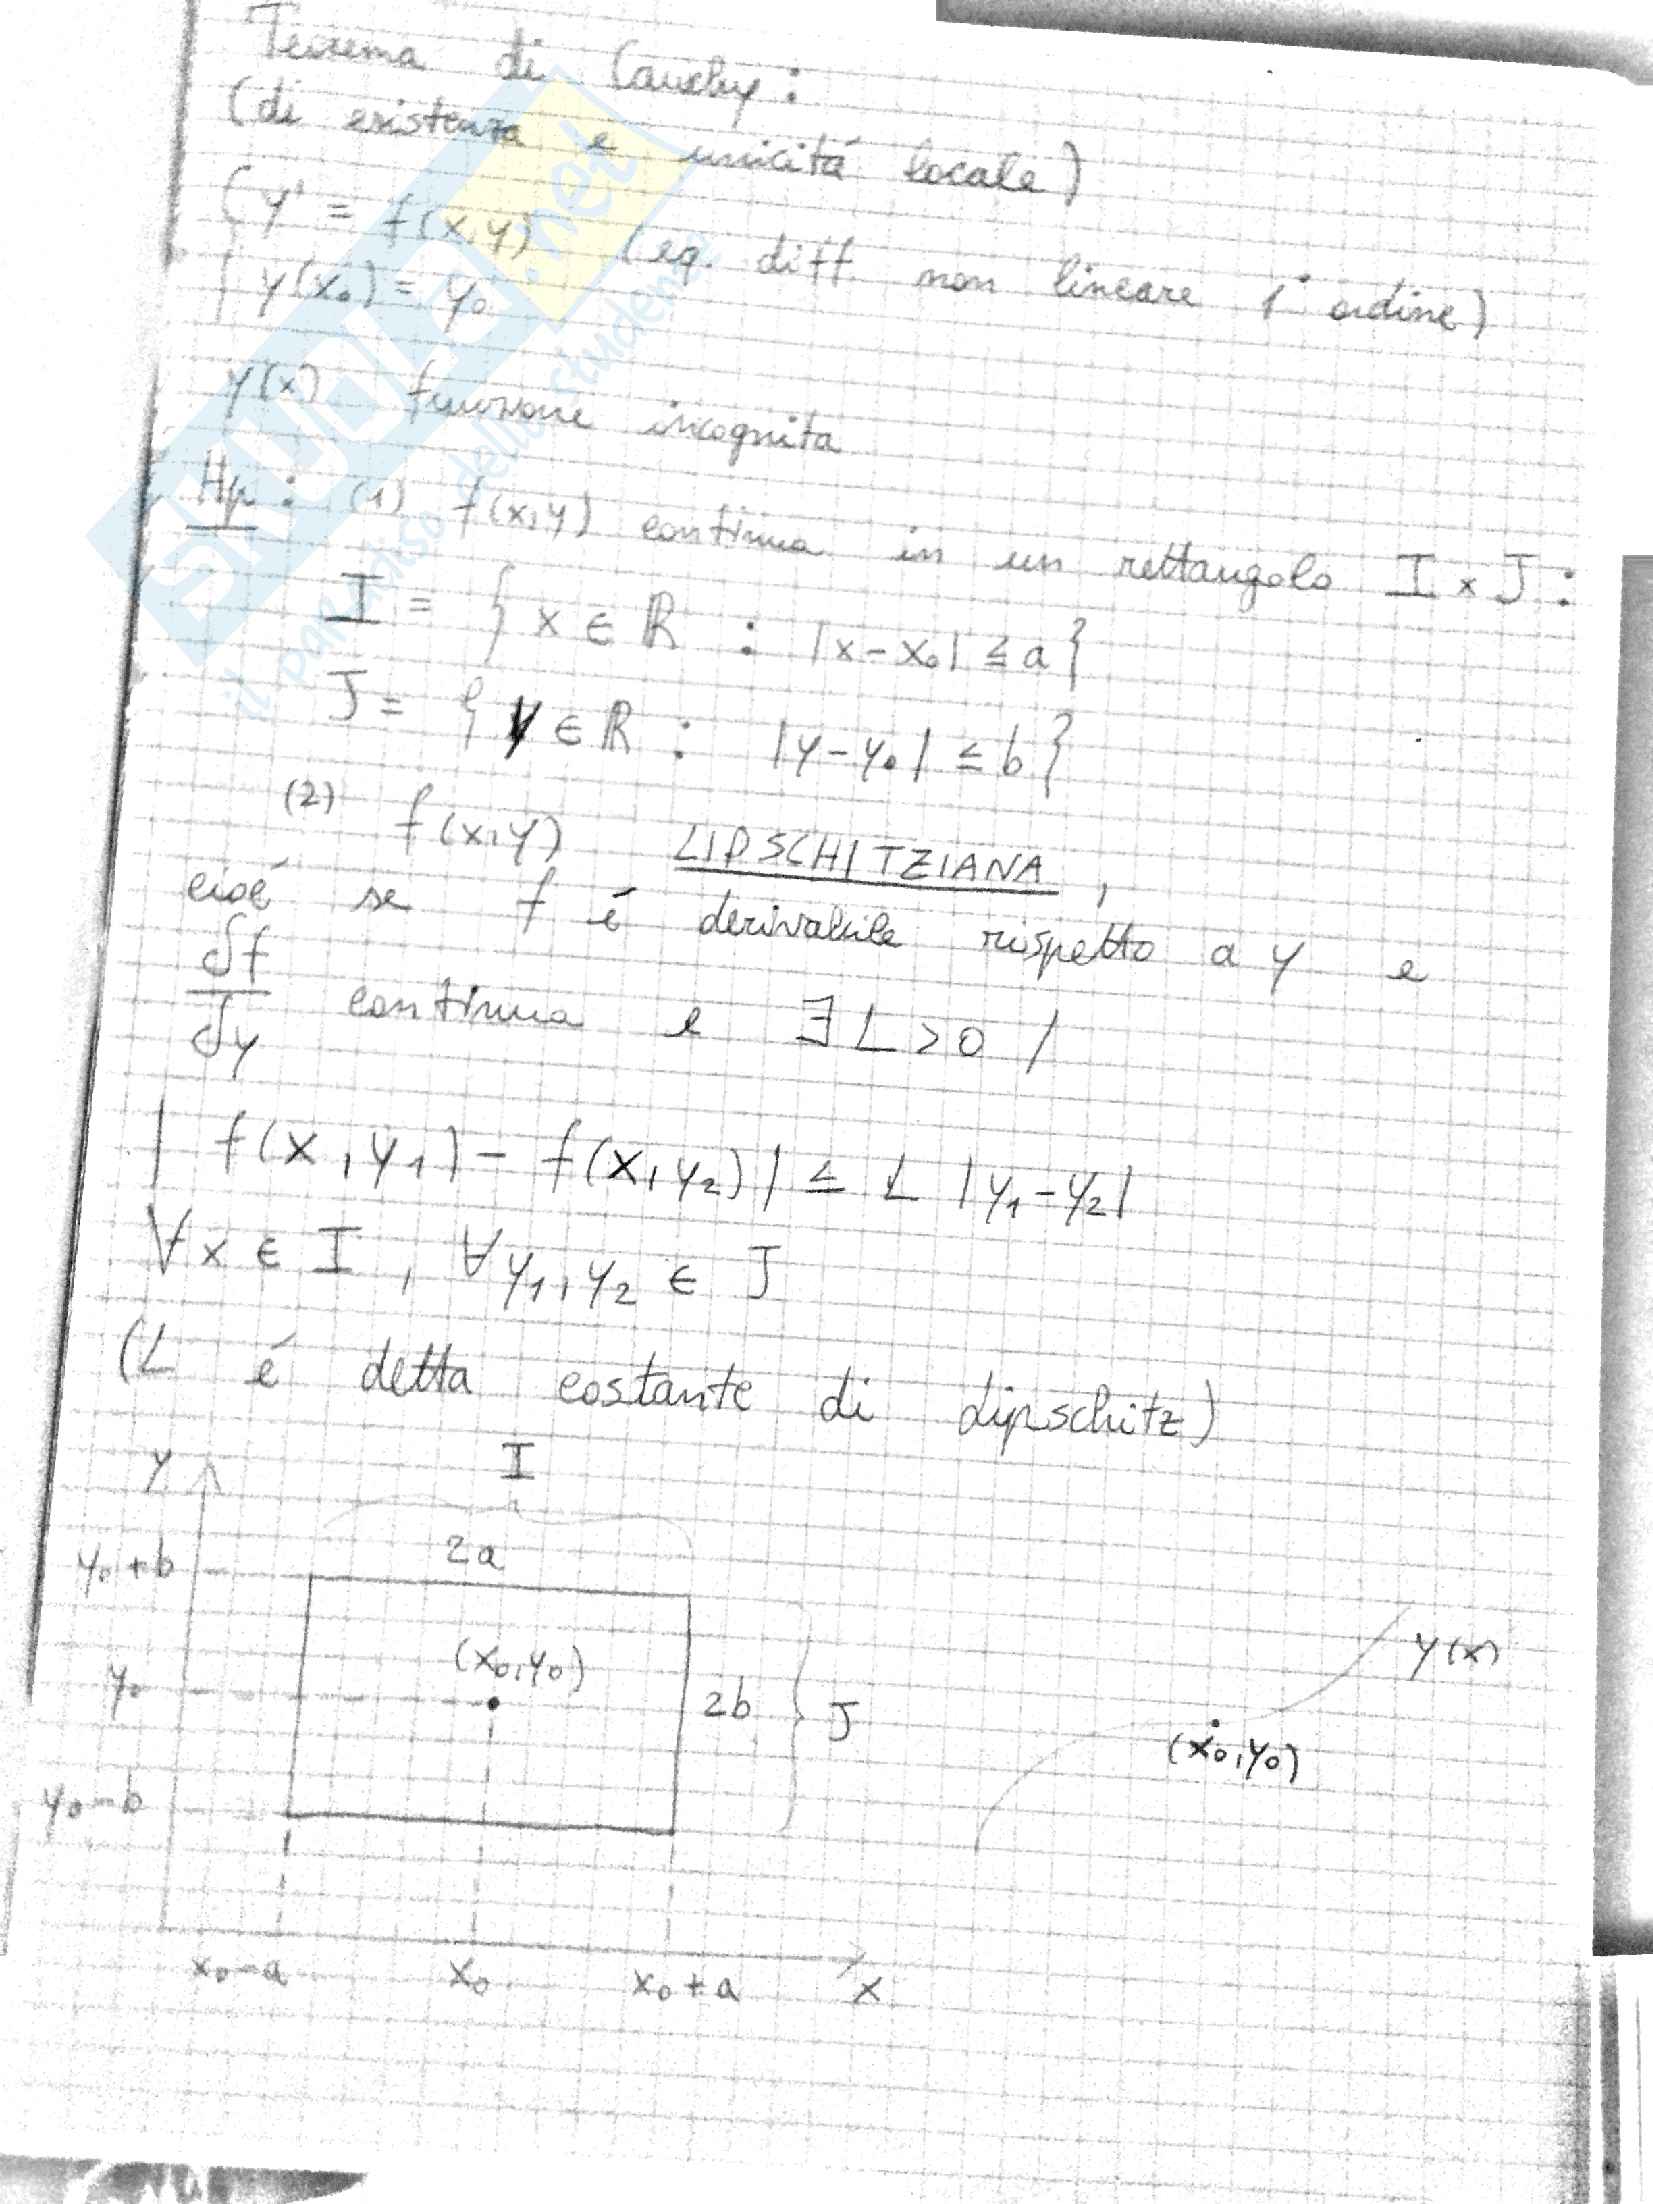 Teorema di Cauchy:
(di esistenza e unicitá locale)
{ y' = f(x,y) (eq. diff. non lineare 1° ordine)
y(x₀) = y₀
y(x) funzione incognita
Hp: (1) f(x,y) continua in un rettangolo I × J:
I = { x ∈ ℝ : |x-x₀| ≤ a }
J = { y ∈ ℝ : |y-y₀| ≤ b }
(2) f(x,y) LIPSCHITZIANA,
cioé se f é derivabile rispetto a y e
∂f/∂y continua e ∃ L > 0 /
| f(x,y₁) - f(x,y₂) | ≤ L |y₁-y₂|
∀ x ∈ I, ∀ y₁,y₂ ∈ J
(L é detta costante di Lipschitz)
y
I
2a
y₀+b
(x₀,y₀)
y₀
2b
J
y₀-b
x₀-a
x₀
x₀+a
x
y(x)
(x₀,y₀)
SKUOLA.net
il paradiso dello studente